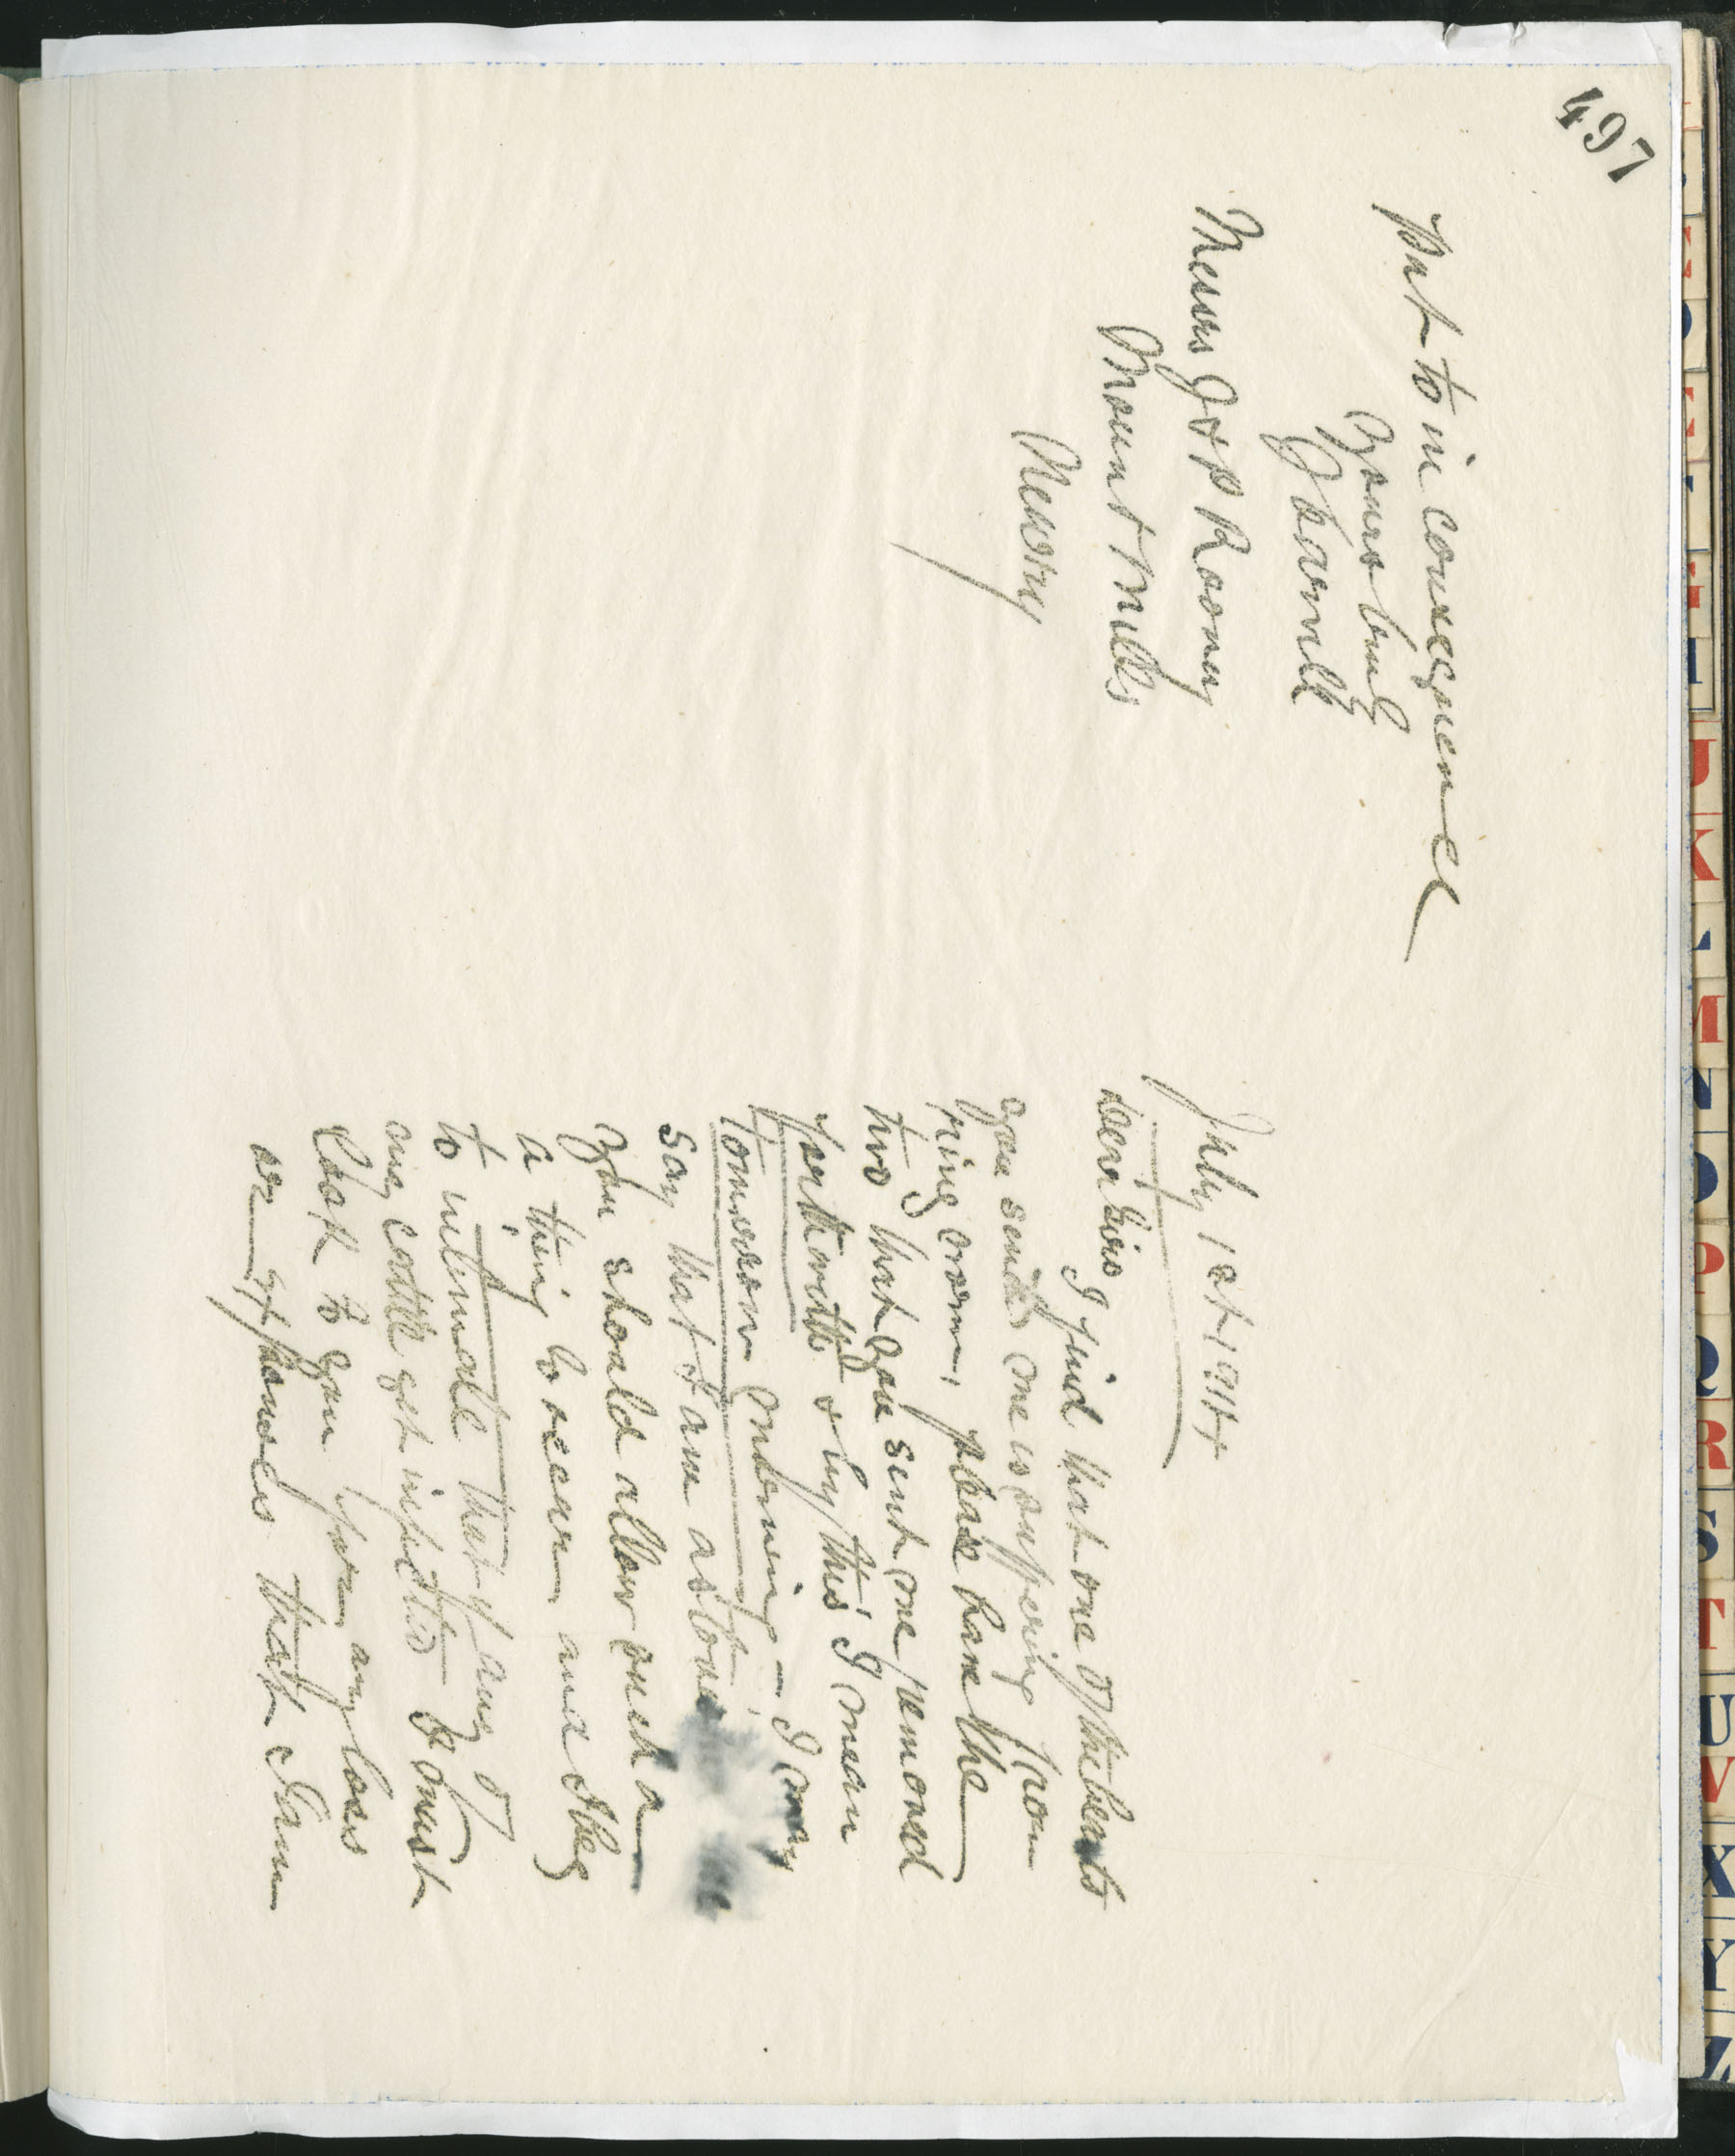 497
July 1st 1914
Dear Sirs
I find that one of the beasts
you send me is suffering from
ring worm, please have the
two that you sent me removed
forthwith & by this I mean
tomorrow morning — I may
say that I am
you should allow such a
a thing to occur and I beg
to intimate that if any of
my cattle get infected I must
look to you for any loss
or expenses that I am
put to in consequence
Yours truly
Messrs J & P Rooney
Mount Mills
Newry